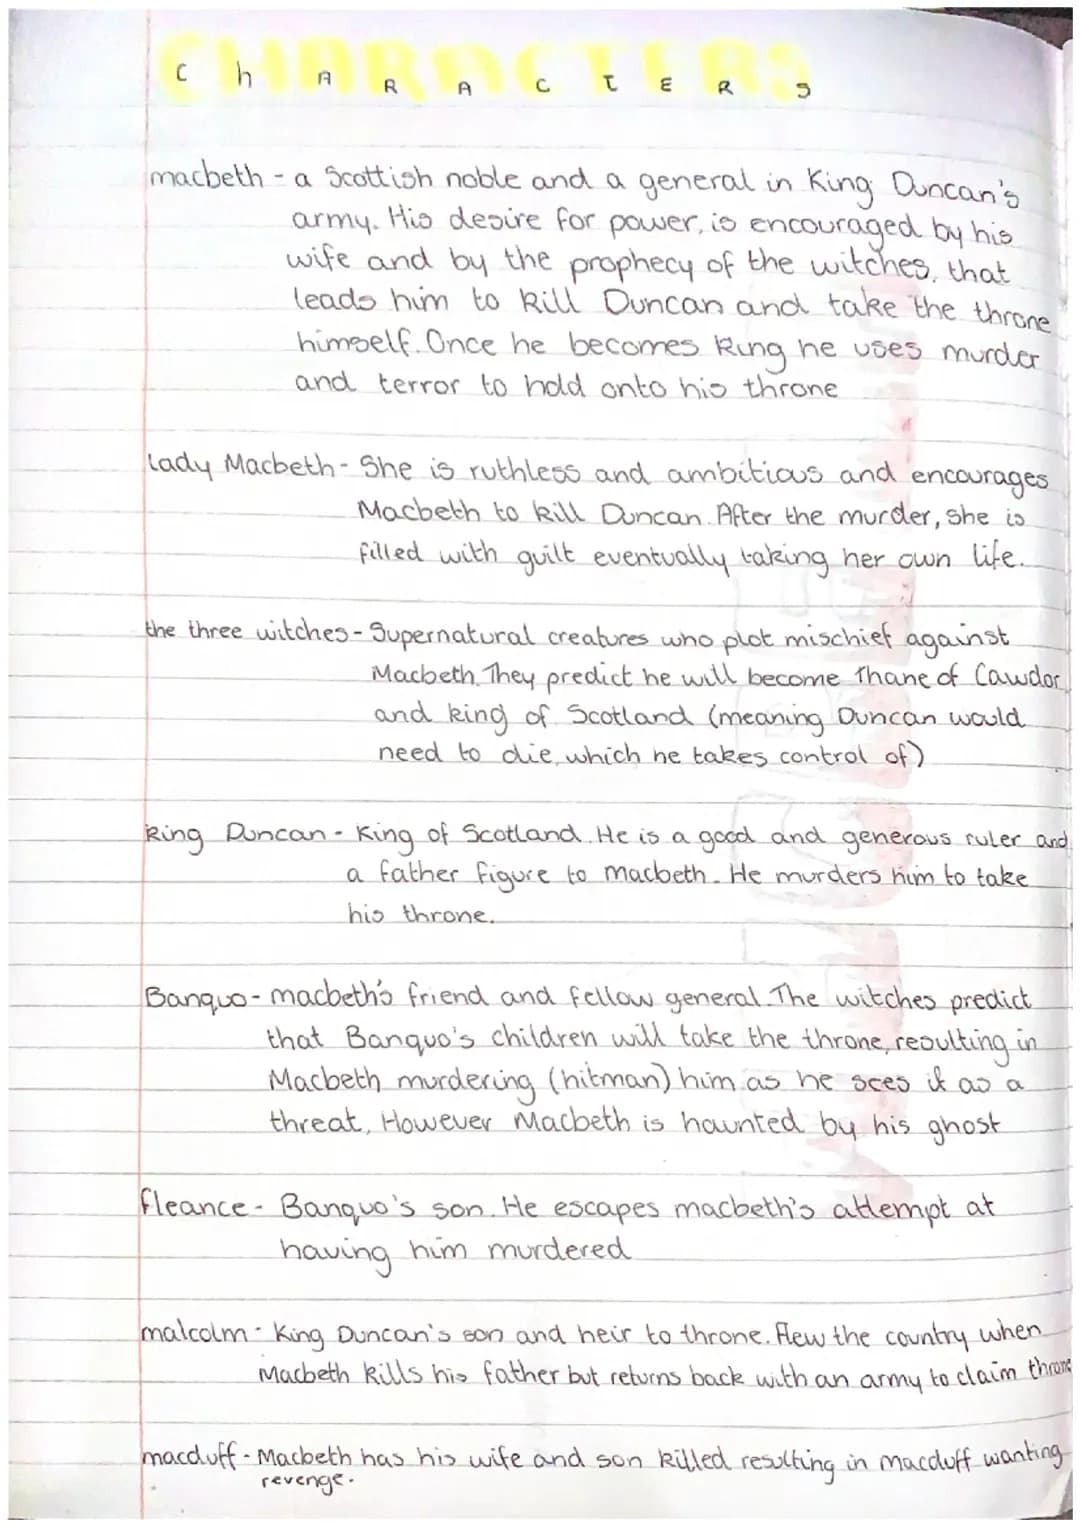 CHARACTERS
C h A R A C T E R S
macbeth - a Scottish noble and a general in King Duncan's
army. His desire for power, is encouraged by his
wife and by the prophecy of the witches, that
leads him to kill Duncan and take the throne
himself. Once he becomes king he uses murder
and terror to hold onto his throne
Lady Macbeth - She is ruthless and ambitious and encourages
Macbeth to kill Duncan. After the murder, she is
filled with guilt eventually taking her own life.
the three witches - Supernatural creatures who plot mischief against
Macbeth. They predict he will become Thane of Cawdor
and king of Scotland (meaning Duncan would
need to die, which he takes control of)
King Duncan - King of Scotland. He is a good and generous ruler and
a father figure to macbeth. He murders him to take
his throne.
Banquo - macbeth's friend and fellow general. The witches predict
that Banquo's children will take the throne, resulting in
Macbeth murdering (hitman) him as he sees it as a
threat, However Macbeth is haunted by his ghost
fleance - Banquo's son. He escapes macbeth's attempt at
having him murdered
malcolm - King Duncan's son and heir to throne. Flew the country when
Macbeth kills his father but returns back with an army to claim throne
macduff - Macbeth has his wife and son killed resulting in macduff wanting
revenge.